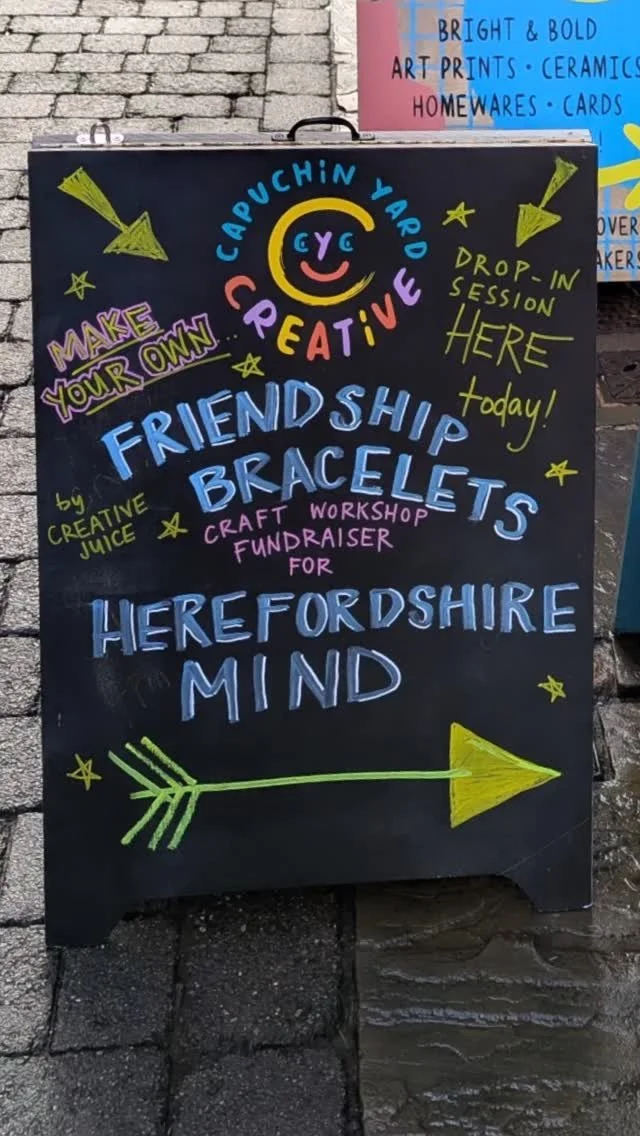 BRIGHT & BOLD
ART PRINTS · CERAMICS
HOMEWARES · CARDS
OVER
AKERS
CAPUCHiN YARD
CYC
CREATiVE
DROP-IN
SESSION
HERE
today!
MAKE
YOUR OWN...
FRIENDSHIP
BRACELETS
by
CREATIVE
JUICE
CRAFT WORKSHOP
FUNDRAISER
FOR
HEREFORDSHIRE
MIND